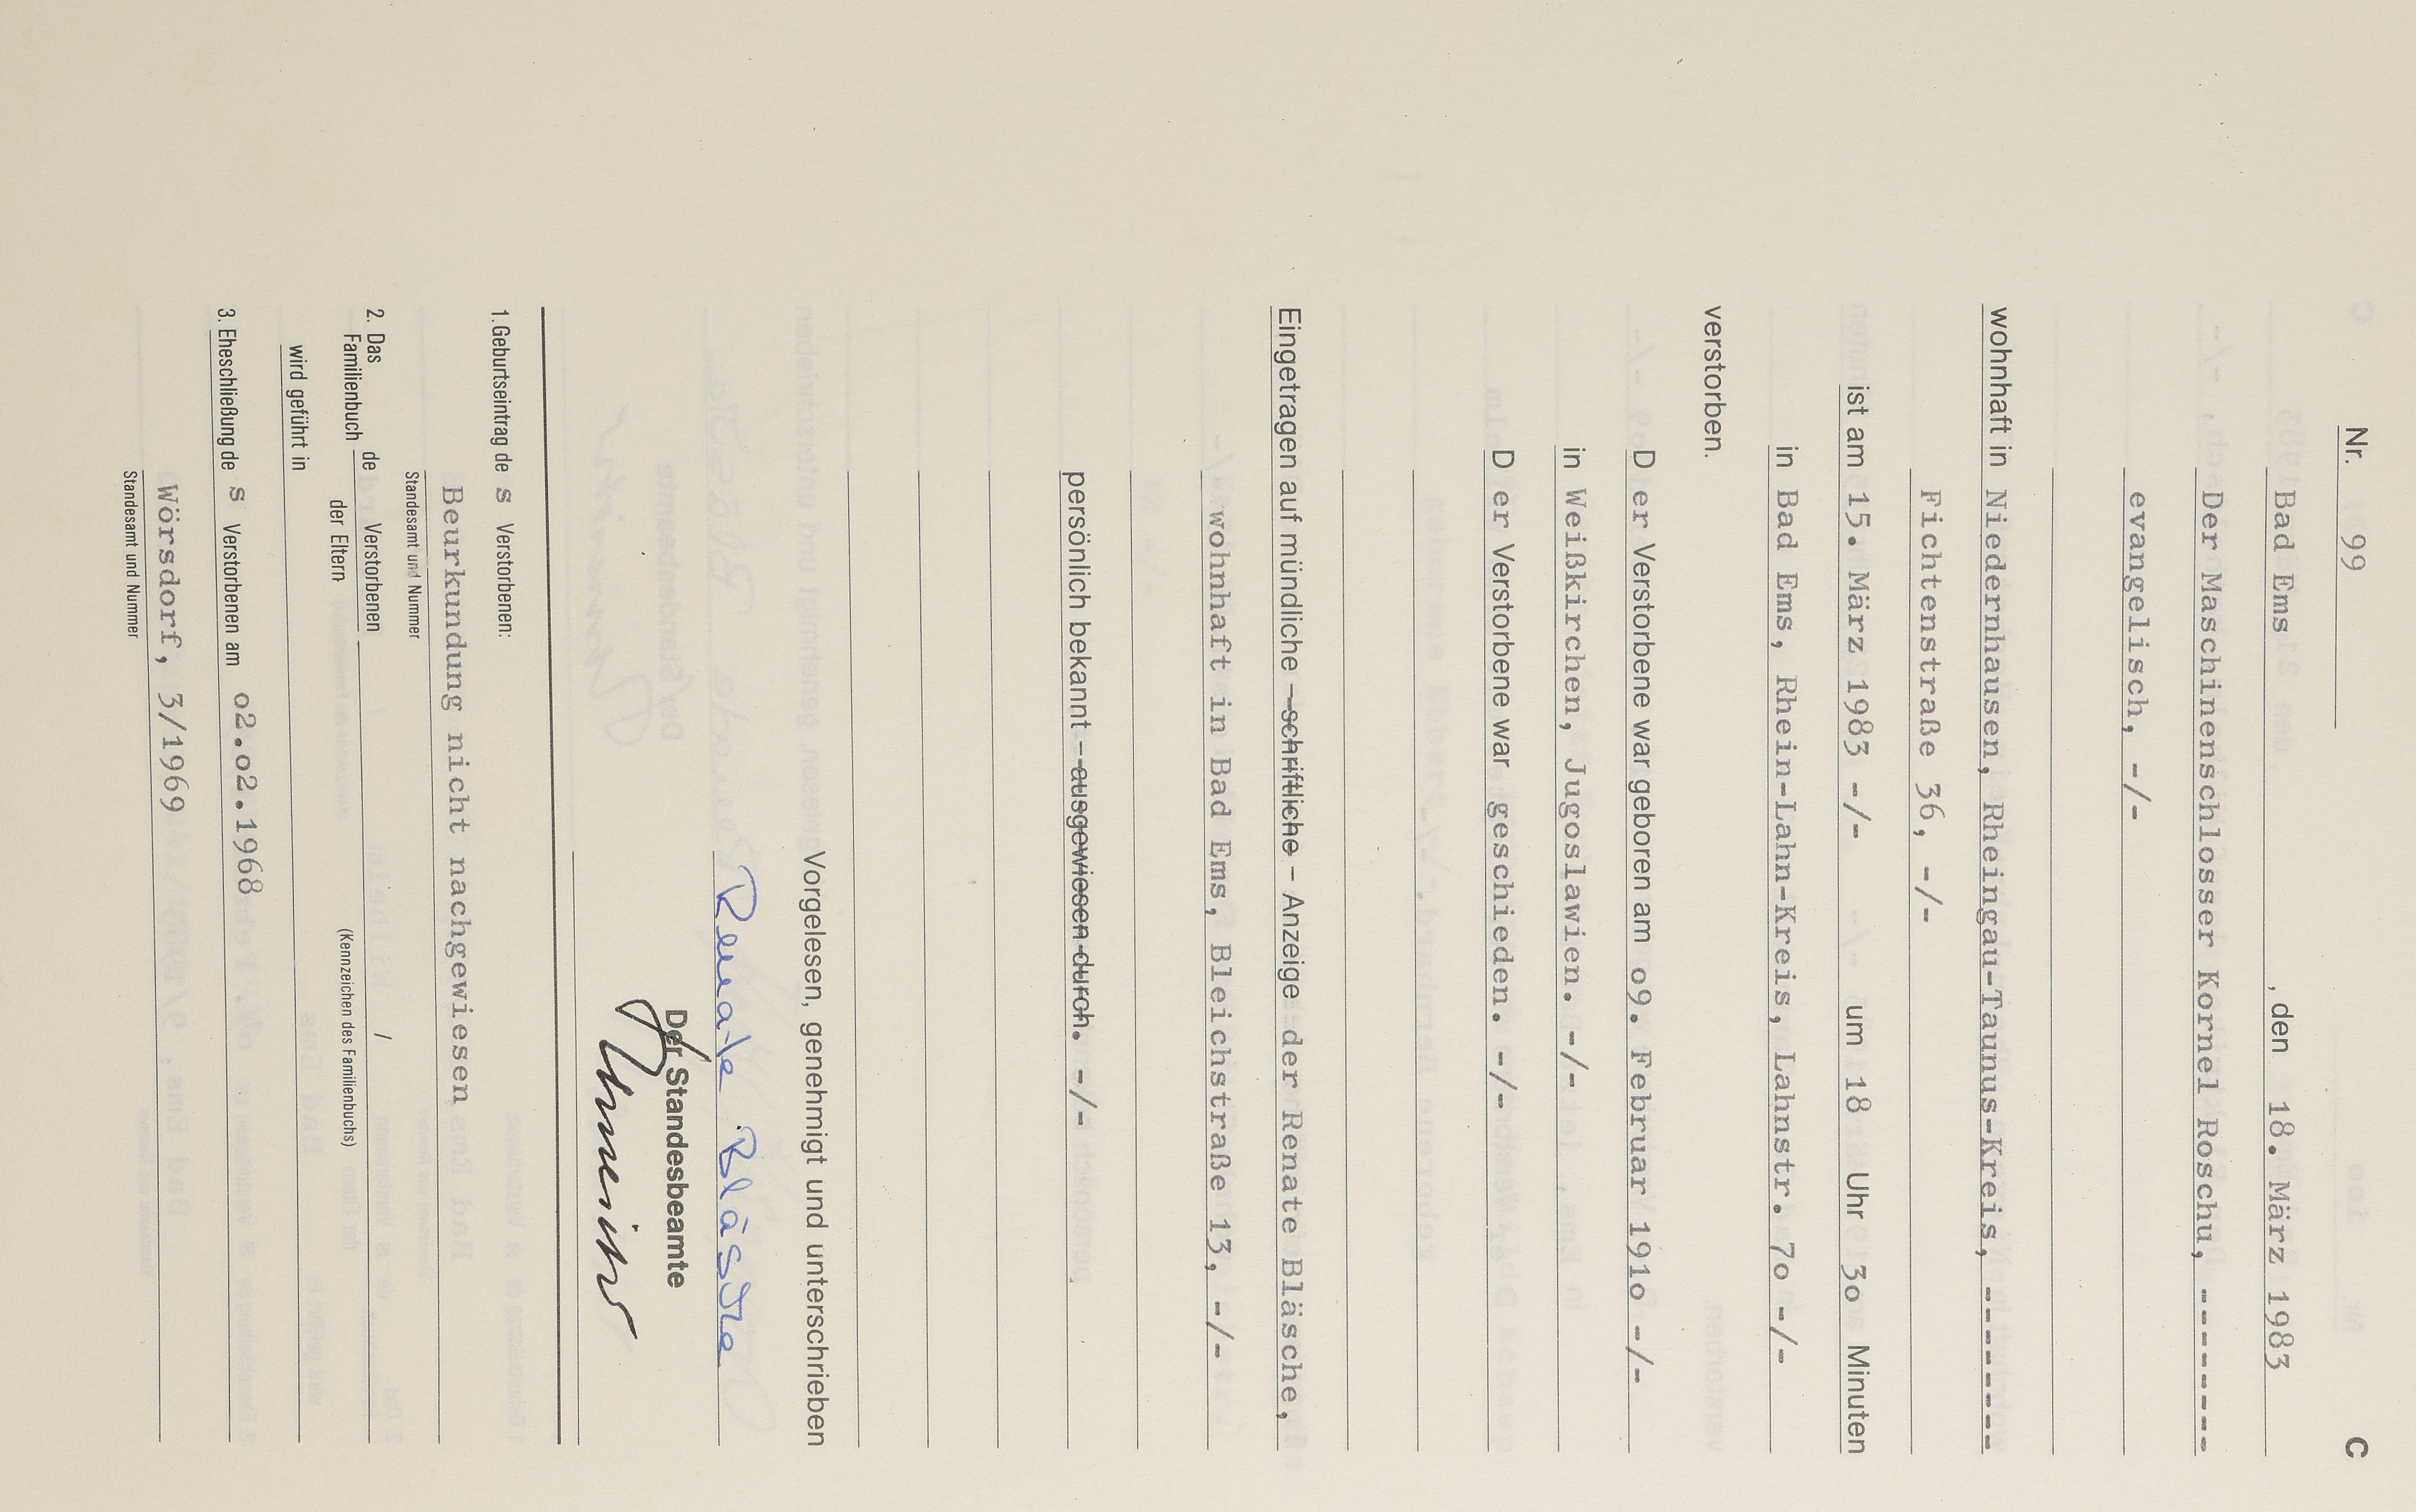 Nr. 99 C
Bad Ems , den 18. März 1983
Der Maschinenschlosser Kornel Roschu, --------
evangelisch, -/-
wohnhaft in Niedernhausen, Rheingau-Taunus-Kreis, --------
Fichtenstraße 36, -/-
ist am 15. März 1983 -/- um 18 Uhr 3o Minuten
in Bad Ems, Rhein-Lahn-Kreis, Lahnstr. 7o -/-
verstorben.
D er Verstorbene war geboren am o9. Februar 191o -/-
in Weißkirchen, Jugoslawien. -/-
D er Verstorbene war geschieden. -/-
Eingetragen auf mündliche – schriftliche – Anzeige der Renate Bläsche,
wohnhaft in Bad Ems, Bleichstraße 13, -/-
persönlich bekannt – ausgewiesen durch. -/-
Vorgelesen, genehmigt und unterschrieben
Renate Bläsche
Der Standesbeamte
1. Geburtseintrag de s Verstorbenen:
Beurkundung nicht nachgewiesen
Standesamt und Nummer
2. Das Familienbuch de Verstorbenen /
der Eltern (Kennzeichen des Familienbuchs)
wird geführt in
3. Eheschließung de s Verstorbenen am o2.o2.1968
Wörsdorf, 3/1969
Standesamt und Nummer